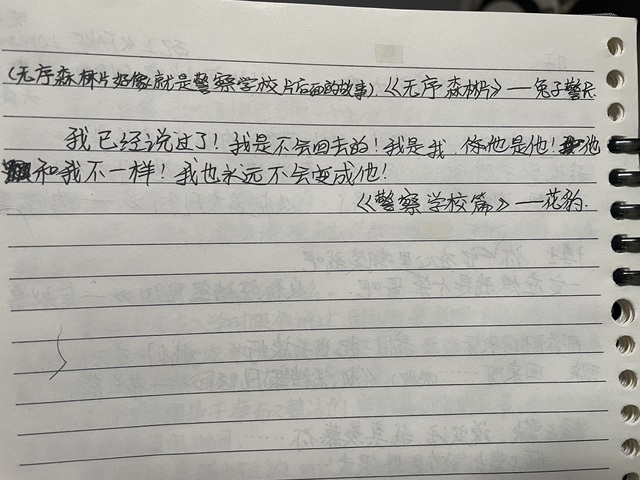 （无序森林片好像就是警察学校片后面的故事）.《无序森林片》——兔子警长
我已经说过了！我是不会回去的！我是我 他是他！他
和我不一样！我也永远不会变成他！
《警察学校篇》——花豹.